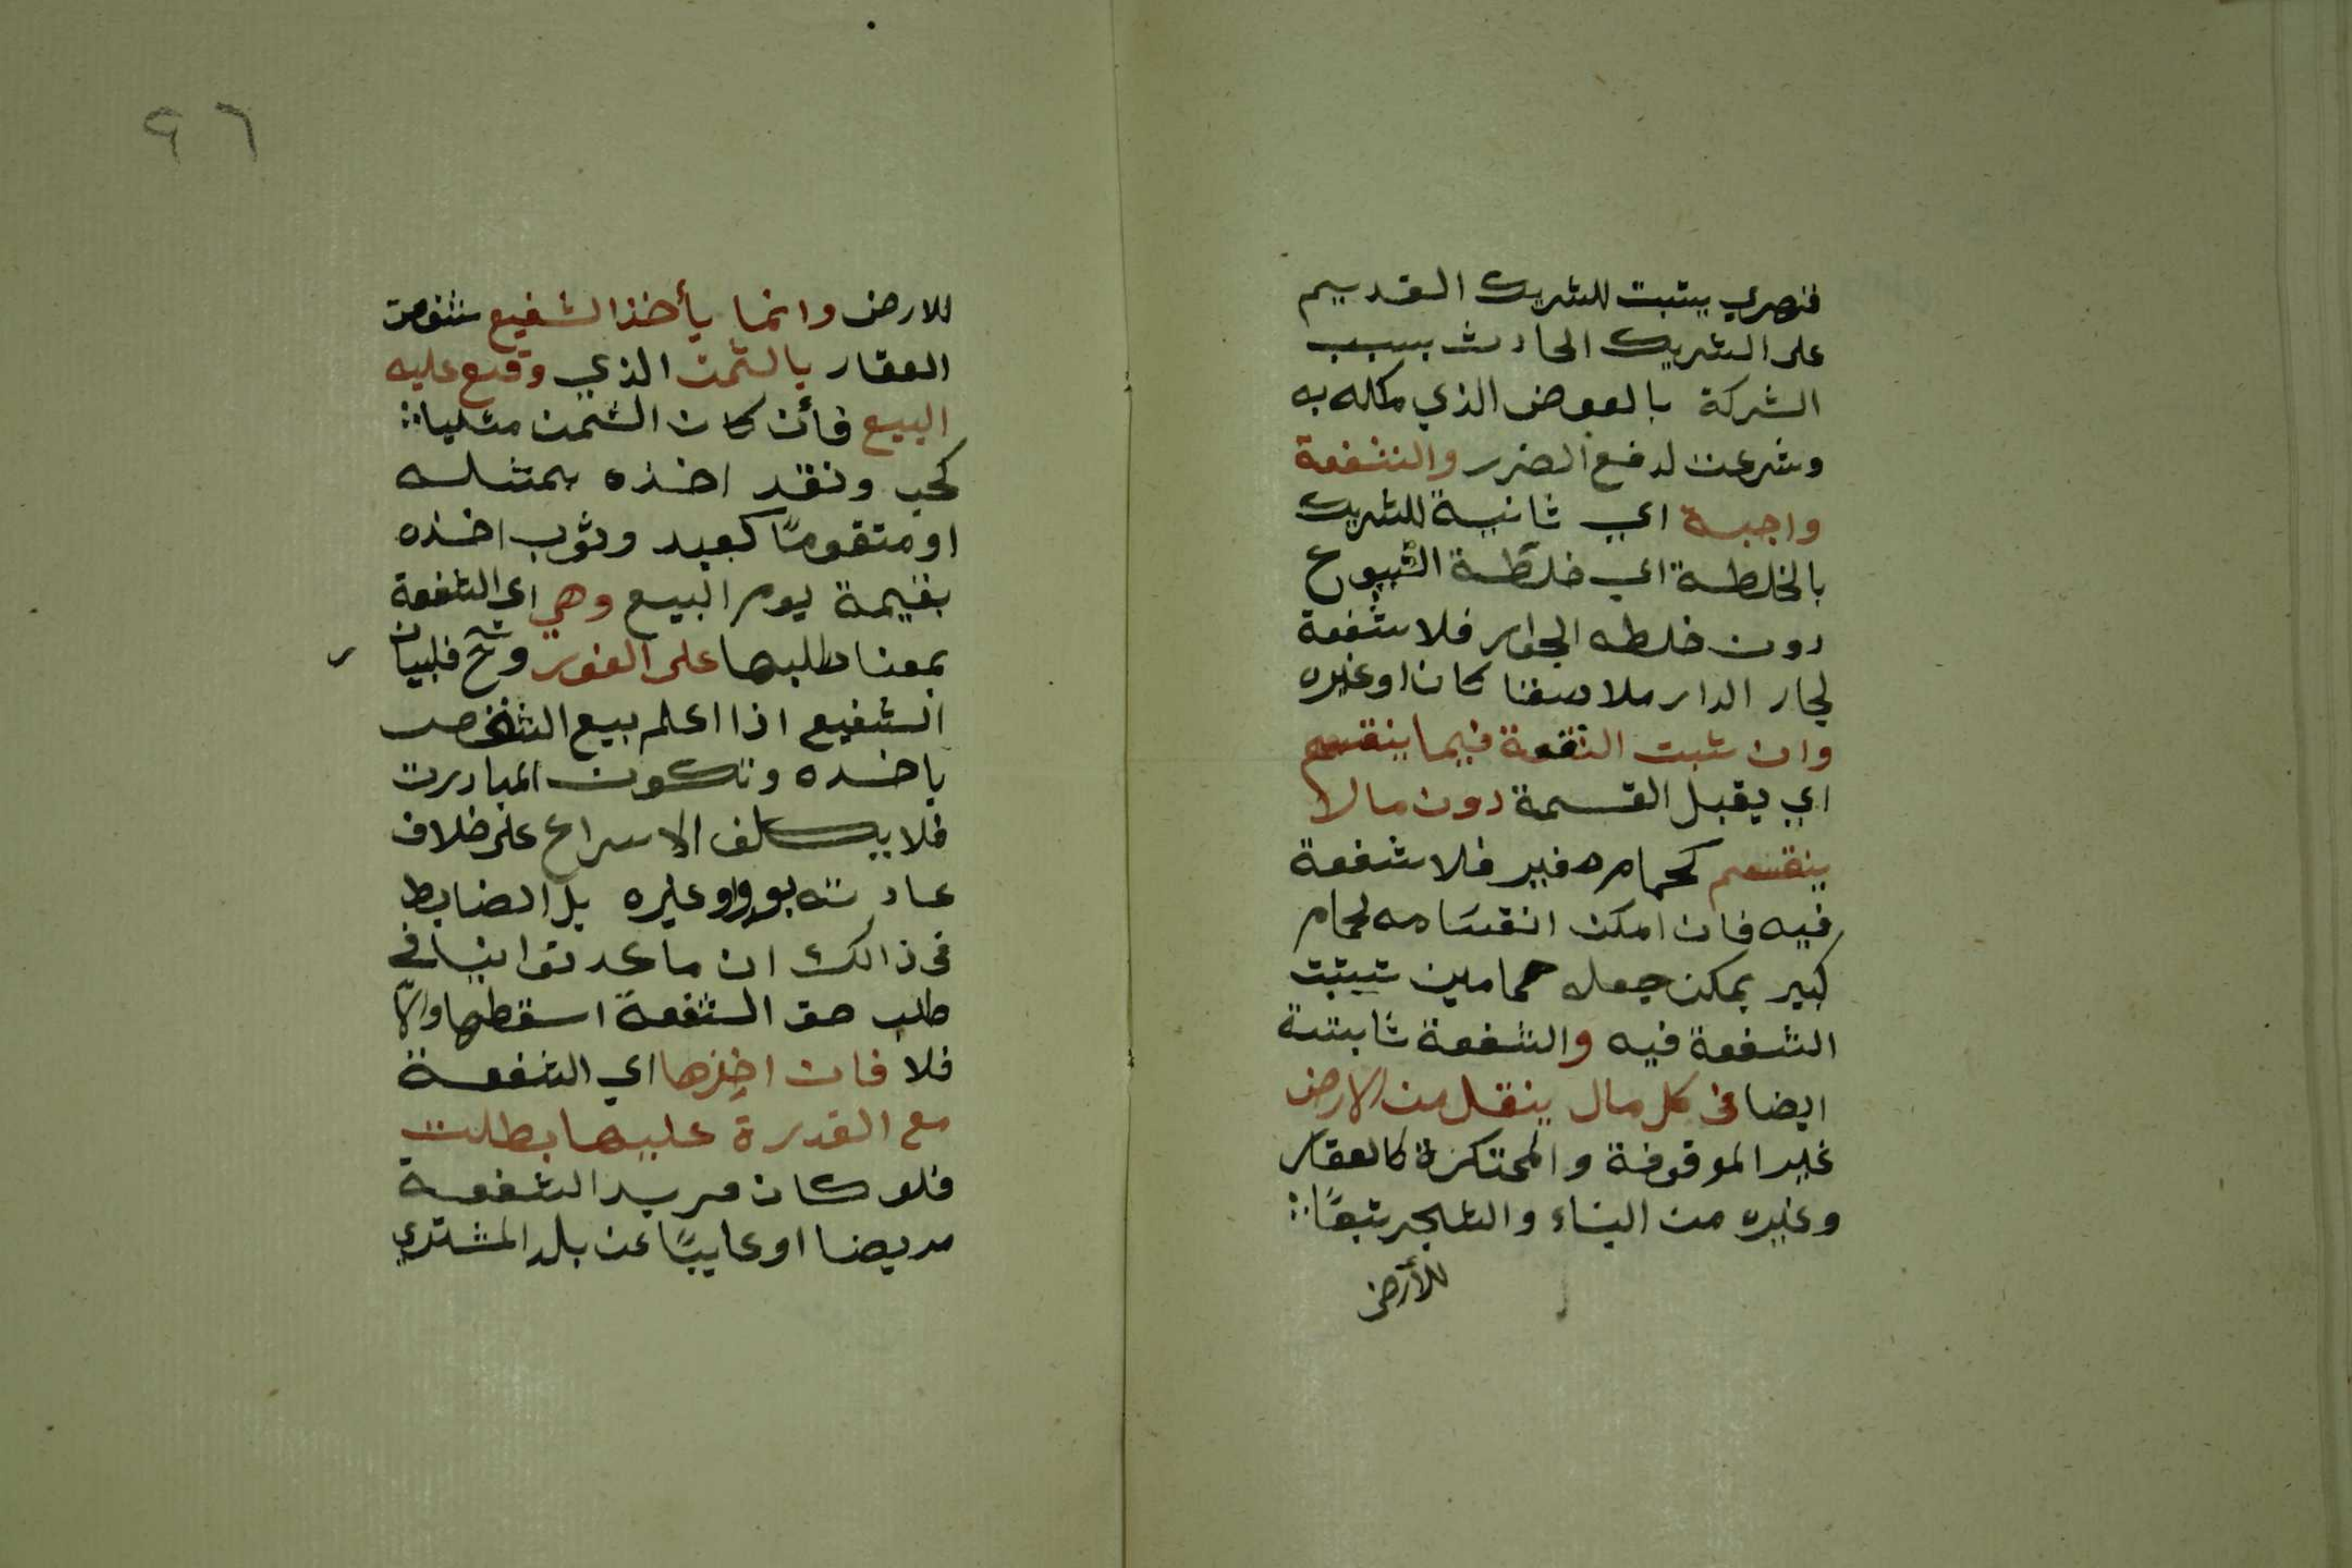 قنصري يتبت للشريك القديم
على الشريك الحادث بسبب
الشركة بالعوض الذي مكله به
وشرعت لدفع الضرر والشفعة
واجبة اي ثانية للشريك
بالخلطة اي خلطة الشيوع
دون خلطه الجوار فلا شفعة
لجار الدار ملاصقا كان او غيره
وان ثبت الشفعة فيما ينقسم
اي يقبل القسمة دون ما لا
ينقسم كحمام صفير فلا شفعة
فيه فان امكن انقسامه لحمام
كبير يمكن جعله حمامين تيبتت
الشفعة فيه والشفعة ثابتتة
ايضا في كل مال ينقل من الارض
غير الموقوفة والمحتكرة كالعقار
وغيره من البناء والشجر بتبعًا
للأرض
٩٦
للارض وانما يأخذ الشفيع
العقار بالثمن الذي وقع عليه
البيع فأن كان الثمن مثليا
كحب ونقد اخذه بمثله
او متقومًا كعبد وثوب اخذه
بقيمة يوم البيع وهي اي الشفعة
بمعنا طلبها على الفور وح
الشفيع اذا اعلم بيع الشخص
باخذه وتكون المبادرت
فلا يكلف الاسراع على خلاف
عادته او غيره بل الضابط
في ذالك ان ما
طلب حق الشفعة اسقطها والا
فلا فان اخرها اي الشفعة
مع القدرة عليها بطلت
فلو كان مريد الشفعة
مريضا او غايبًا عن بلد المشتري